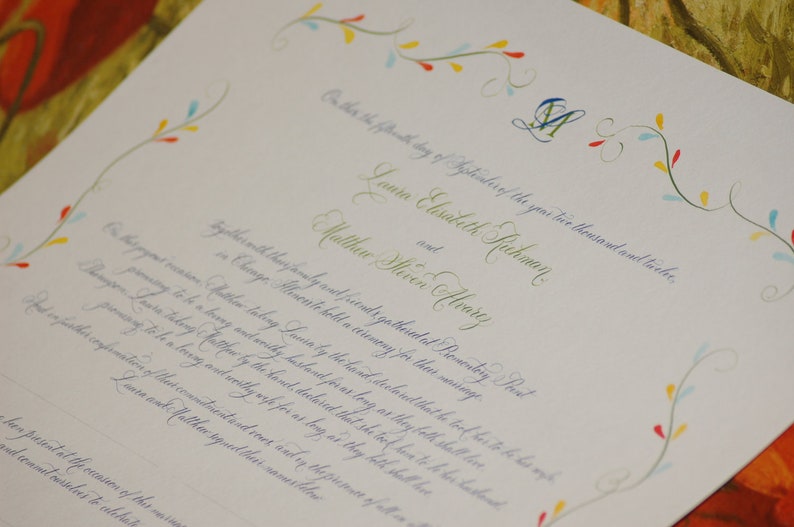 LM
On this the fifteenth day of September of the year two thousand and twelve,
Laura Elisabeth Richman
and
Matthew Steven Alvarez
together with their family and friends, gathered at Promontory Point
in Chicago, Illinois to hold a ceremony for their marriage.
On this joyous occasion, Matthew taking Laura by the hand, declared that he took her to be his wife,
promising to be a loving and worthy husband for as long as they both shall live.
Likewise, Laura taking Matthew by the hand, declared that she took him to be her husband,
promising to be a loving and worthy wife for as long as they both shall live.
And in further confirmation of their commitment and vows, and in the presence of all in
Laura and Matthew signed their names below
been present at the occasion of this marriage
and commit ourselves to celebrate